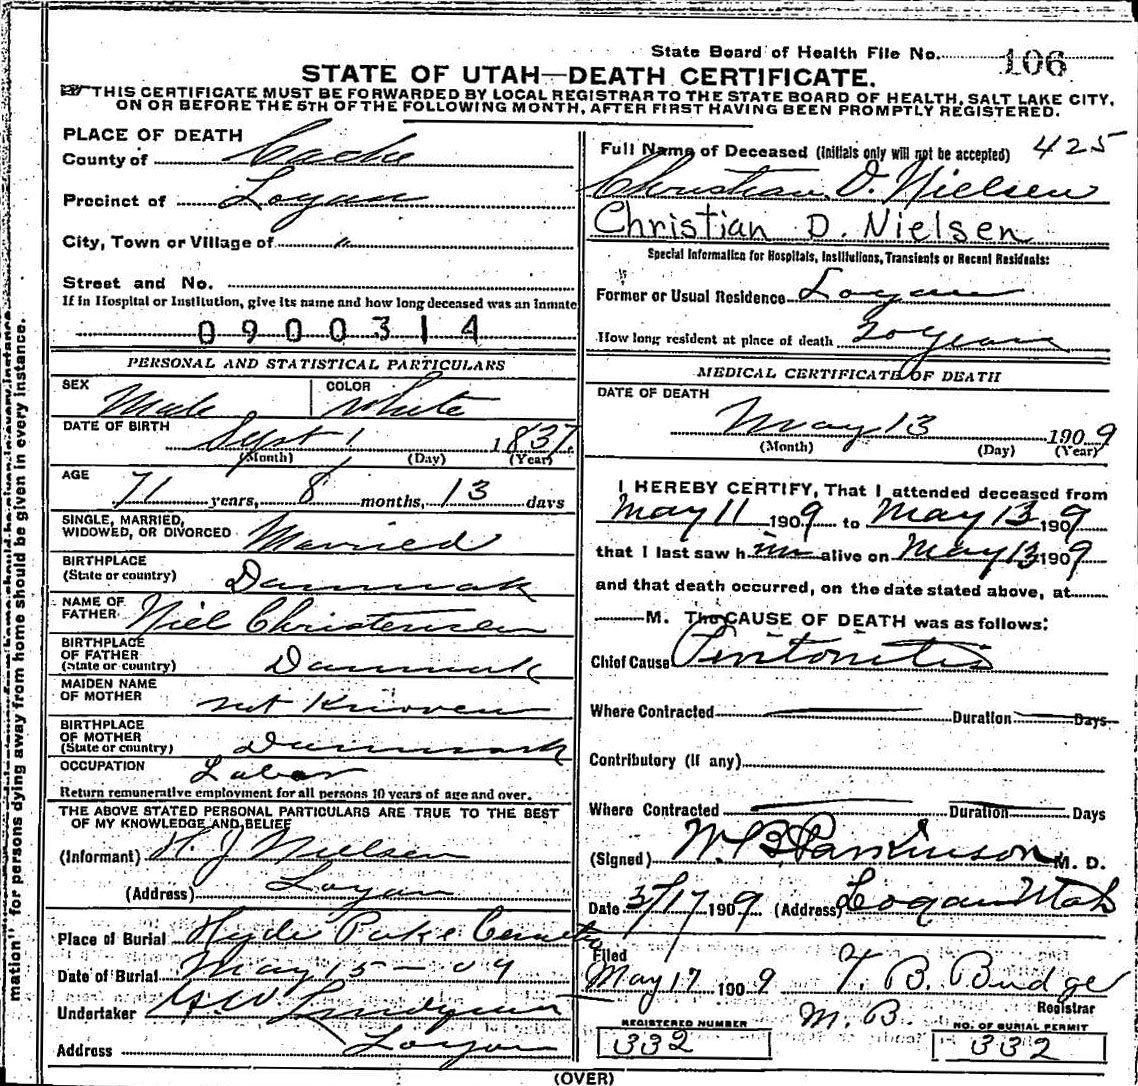 State Board of Health File No. 106
STATE OF UTAH—DEATH CERTIFICATE.
THIS CERTIFICATE MUST BE FORWARDED BY LOCAL REGISTRAR TO THE STATE BOARD OF HEALTH, SALT LAKE CITY,
ON OR BEFORE THE 5TH OF THE FOLLOWING MONTH, AFTER FIRST HAVING BEEN PROMPTLY REGISTERED.
PLACE OF DEATH
County of Cache
Precinct of Logan
City, Town or Village of "
Street and No.
If in Hospital or Institution, give its name and how long deceased was an inmate
0900314
PERSONAL AND STATISTICAL PARTICULARS
SEX Male COLOR White
DATE OF BIRTH Sept 1 1837
(Month) (Day) (Year)
AGE 71 years, 8 months, 13 days
SINGLE, MARRIED,
WIDOWED, OR DIVORCED Married
BIRTHPLACE
(State or country) Danmark
NAME OF
FATHER Niel Christensen
BIRTHPLACE
OF FATHER
(State or country) Danmark
MAIDEN NAME
OF MOTHER not Known
BIRTHPLACE
OF MOTHER
(State or country) Danmark
OCCUPATION Labor
Return remunerative employment for all persons 10 years of age and over.
THE ABOVE STATED PERSONAL PARTICULARS ARE TRUE TO THE BEST
OF MY KNOWLEDGE AND BELIEF
(Informant) J Nielsen
(Address) Logan
Place of Burial Hyde Park Cemetry
Date of Burial May 15-09
Undertaker
Address Logan
Full Name of Deceased (initials only will not be accepted) 425
Christian D. Nielsen
Christian D. Nielsen
Special Information for Hospitals, Institutions, Transients or Recent Residents:
Former or Usual Residence Logan
How long resident at place of death 20 years
MEDICAL CERTIFICATE OF DEATH
DATE OF DEATH
May 13 1909
(Month) (Day) (Year)
I HEREBY CERTIFY, That I attended deceased from
May 11 1909 to May 13 1909
that I last saw him alive on May 13 1909
and that death occurred, on the date stated above, at
M. The CAUSE OF DEATH was as follows:
Chief Cause Peritonitis
Where Contracted Duration Days
Contributory (if any)
Where Contracted Duration Days
(Signed) W. B. Parkinson M. D.
Date 17 1909 (Address) Logan Utah
Filed
May 17 1909 T. B. Budge
Registrar
M. B.
REGISTERED NUMBER
332
NO. OF BURIAL PERMIT
332
(OVER)
mation" for persons dying away from home should be given in every instance.